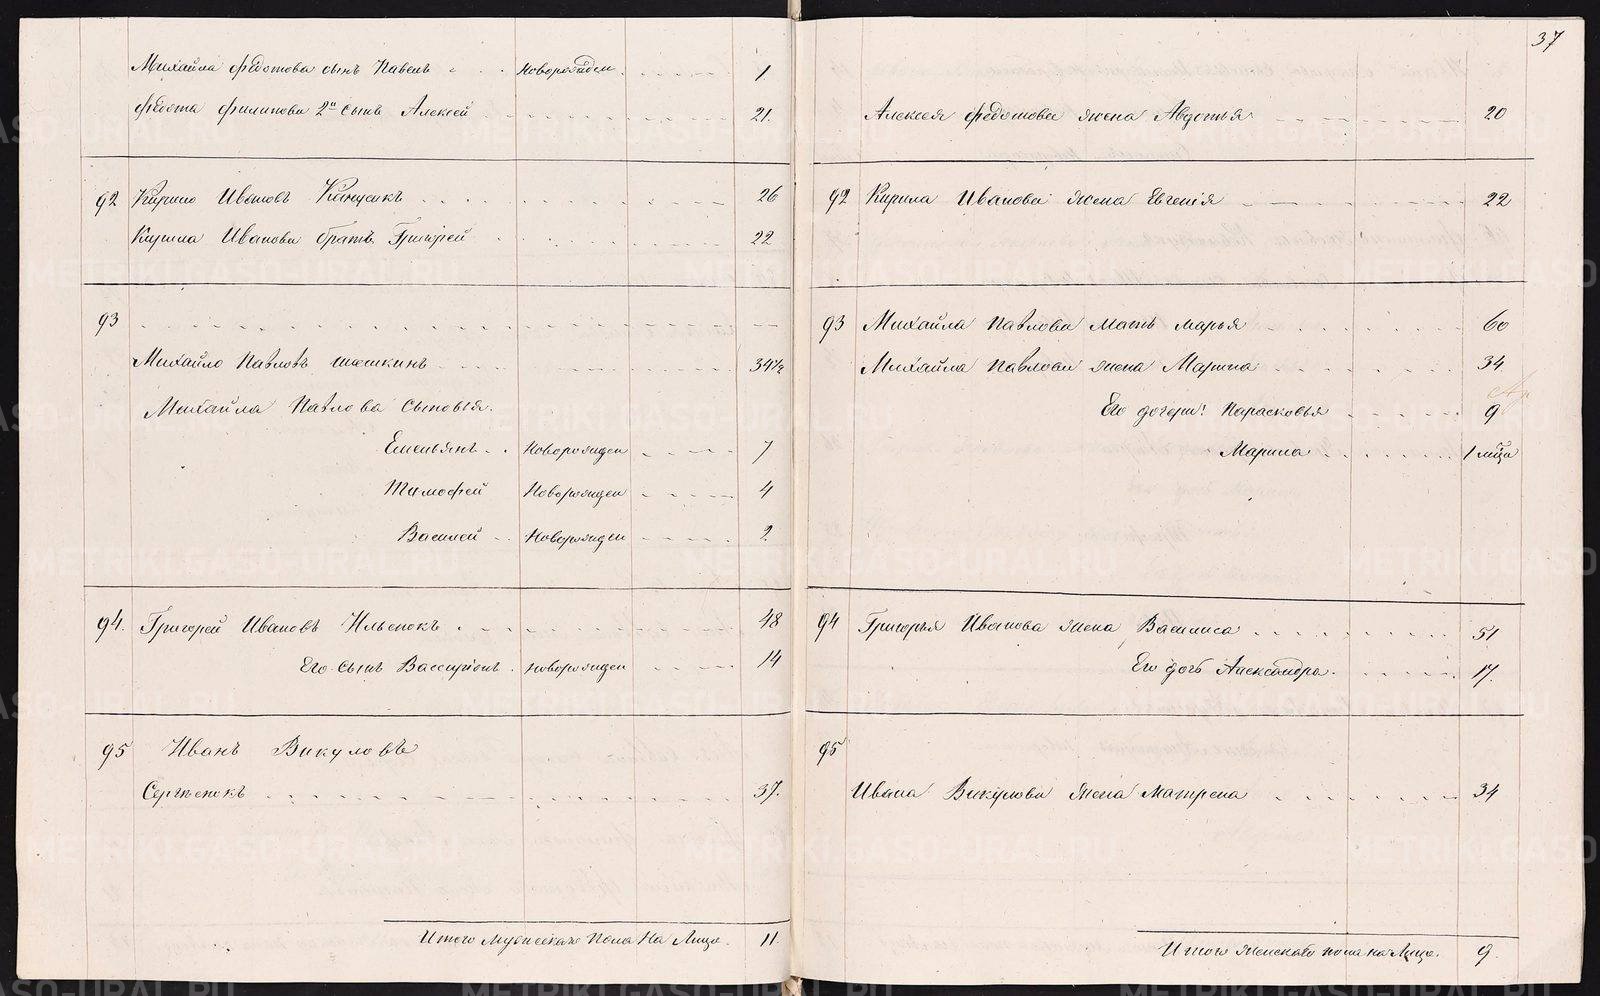 37
Михайла Федотова сынъ Павелъ Новорожден. 1
Федота Филипова 2й сынъ Алексей 21.
Алексея Федотова жена Авдотья 20
92 Кирило Ивановъ 26
Кирила Иванова братъ Григорей 22
92 Кирила Иванова жена Евгенія 22
93
Михайло Павловъ Шешкинъ 34½
Михайла Павлова сыновья.
Емельянъ Новорожден 7
Тимофей Новорожден 4
Василей Новорожден 2
93 Михайла Павлова мать Марья 60
Михайла Павлова жена Марина 34
Его дочери: Парасковья 9
Марина 1 мҍца
94. Григорей Ивановъ Ильенокъ 48
Его сынъ Новорожден 14
94 Григорья Иванова жена Василиса 51
Его дочь Александра. 17.
95 Иванъ Викуловъ
Сергѣенокъ 37.
95
Ивана Викулова жена Матрена 34
Итого Мужескаго Пола На Лицо. 11.
Итого Женскаго пола на Лицо. 9.
METRIKI.GASO-URAL.RU